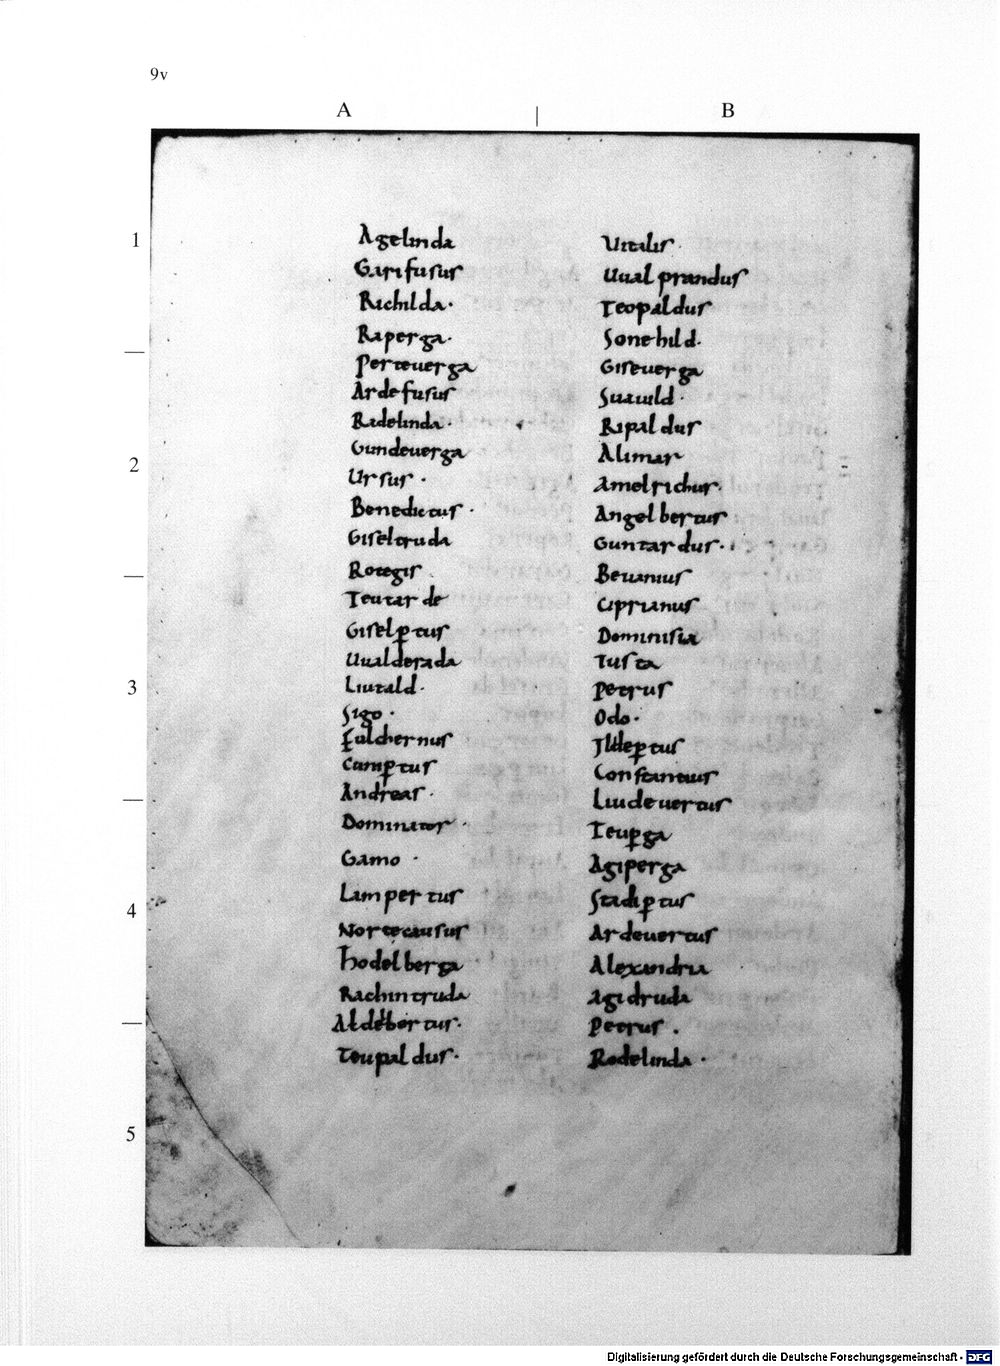 9v
A
B
1
2
3
4
5
Agelinda
Garifusus
Richilda.
Raperga.
Perteuerga
Ardefusus
Radelinda.
Gundeuerga
Ursus.
Benedictus.
Giseltruda
Rotegis
Teutarde
Giselꝑtus
Uualderada
Liutald.
Sigo.
Fulchernus
Cumꝑtus
Andreas.
Dominator.
Gamo.
Lampertus
Nortecausus
Hodelberga
Rachintruda
Aldebertus.
Teupaldus.
Uitalis.
Uualprandus
Teopaldus
Sonehild.
Giseuerga
Suauild.
Ripaldus
Alimar
Amelrichus.
Angelbertus
Guntardus.
Beuanius
Ciprianus
Dominisia
Iusta
Petrus
Odo.
Ildeꝑtus
Constantius
Liudeuertus
Teuꝑga
Agiperga
Stadiꝑtus
Ardeuertus
Alexandria
Agidruda
Petrus.
Rodelinda.
Digitalisierung gefördert durch die Deutsche Forschungsgemeinschaft - DFG